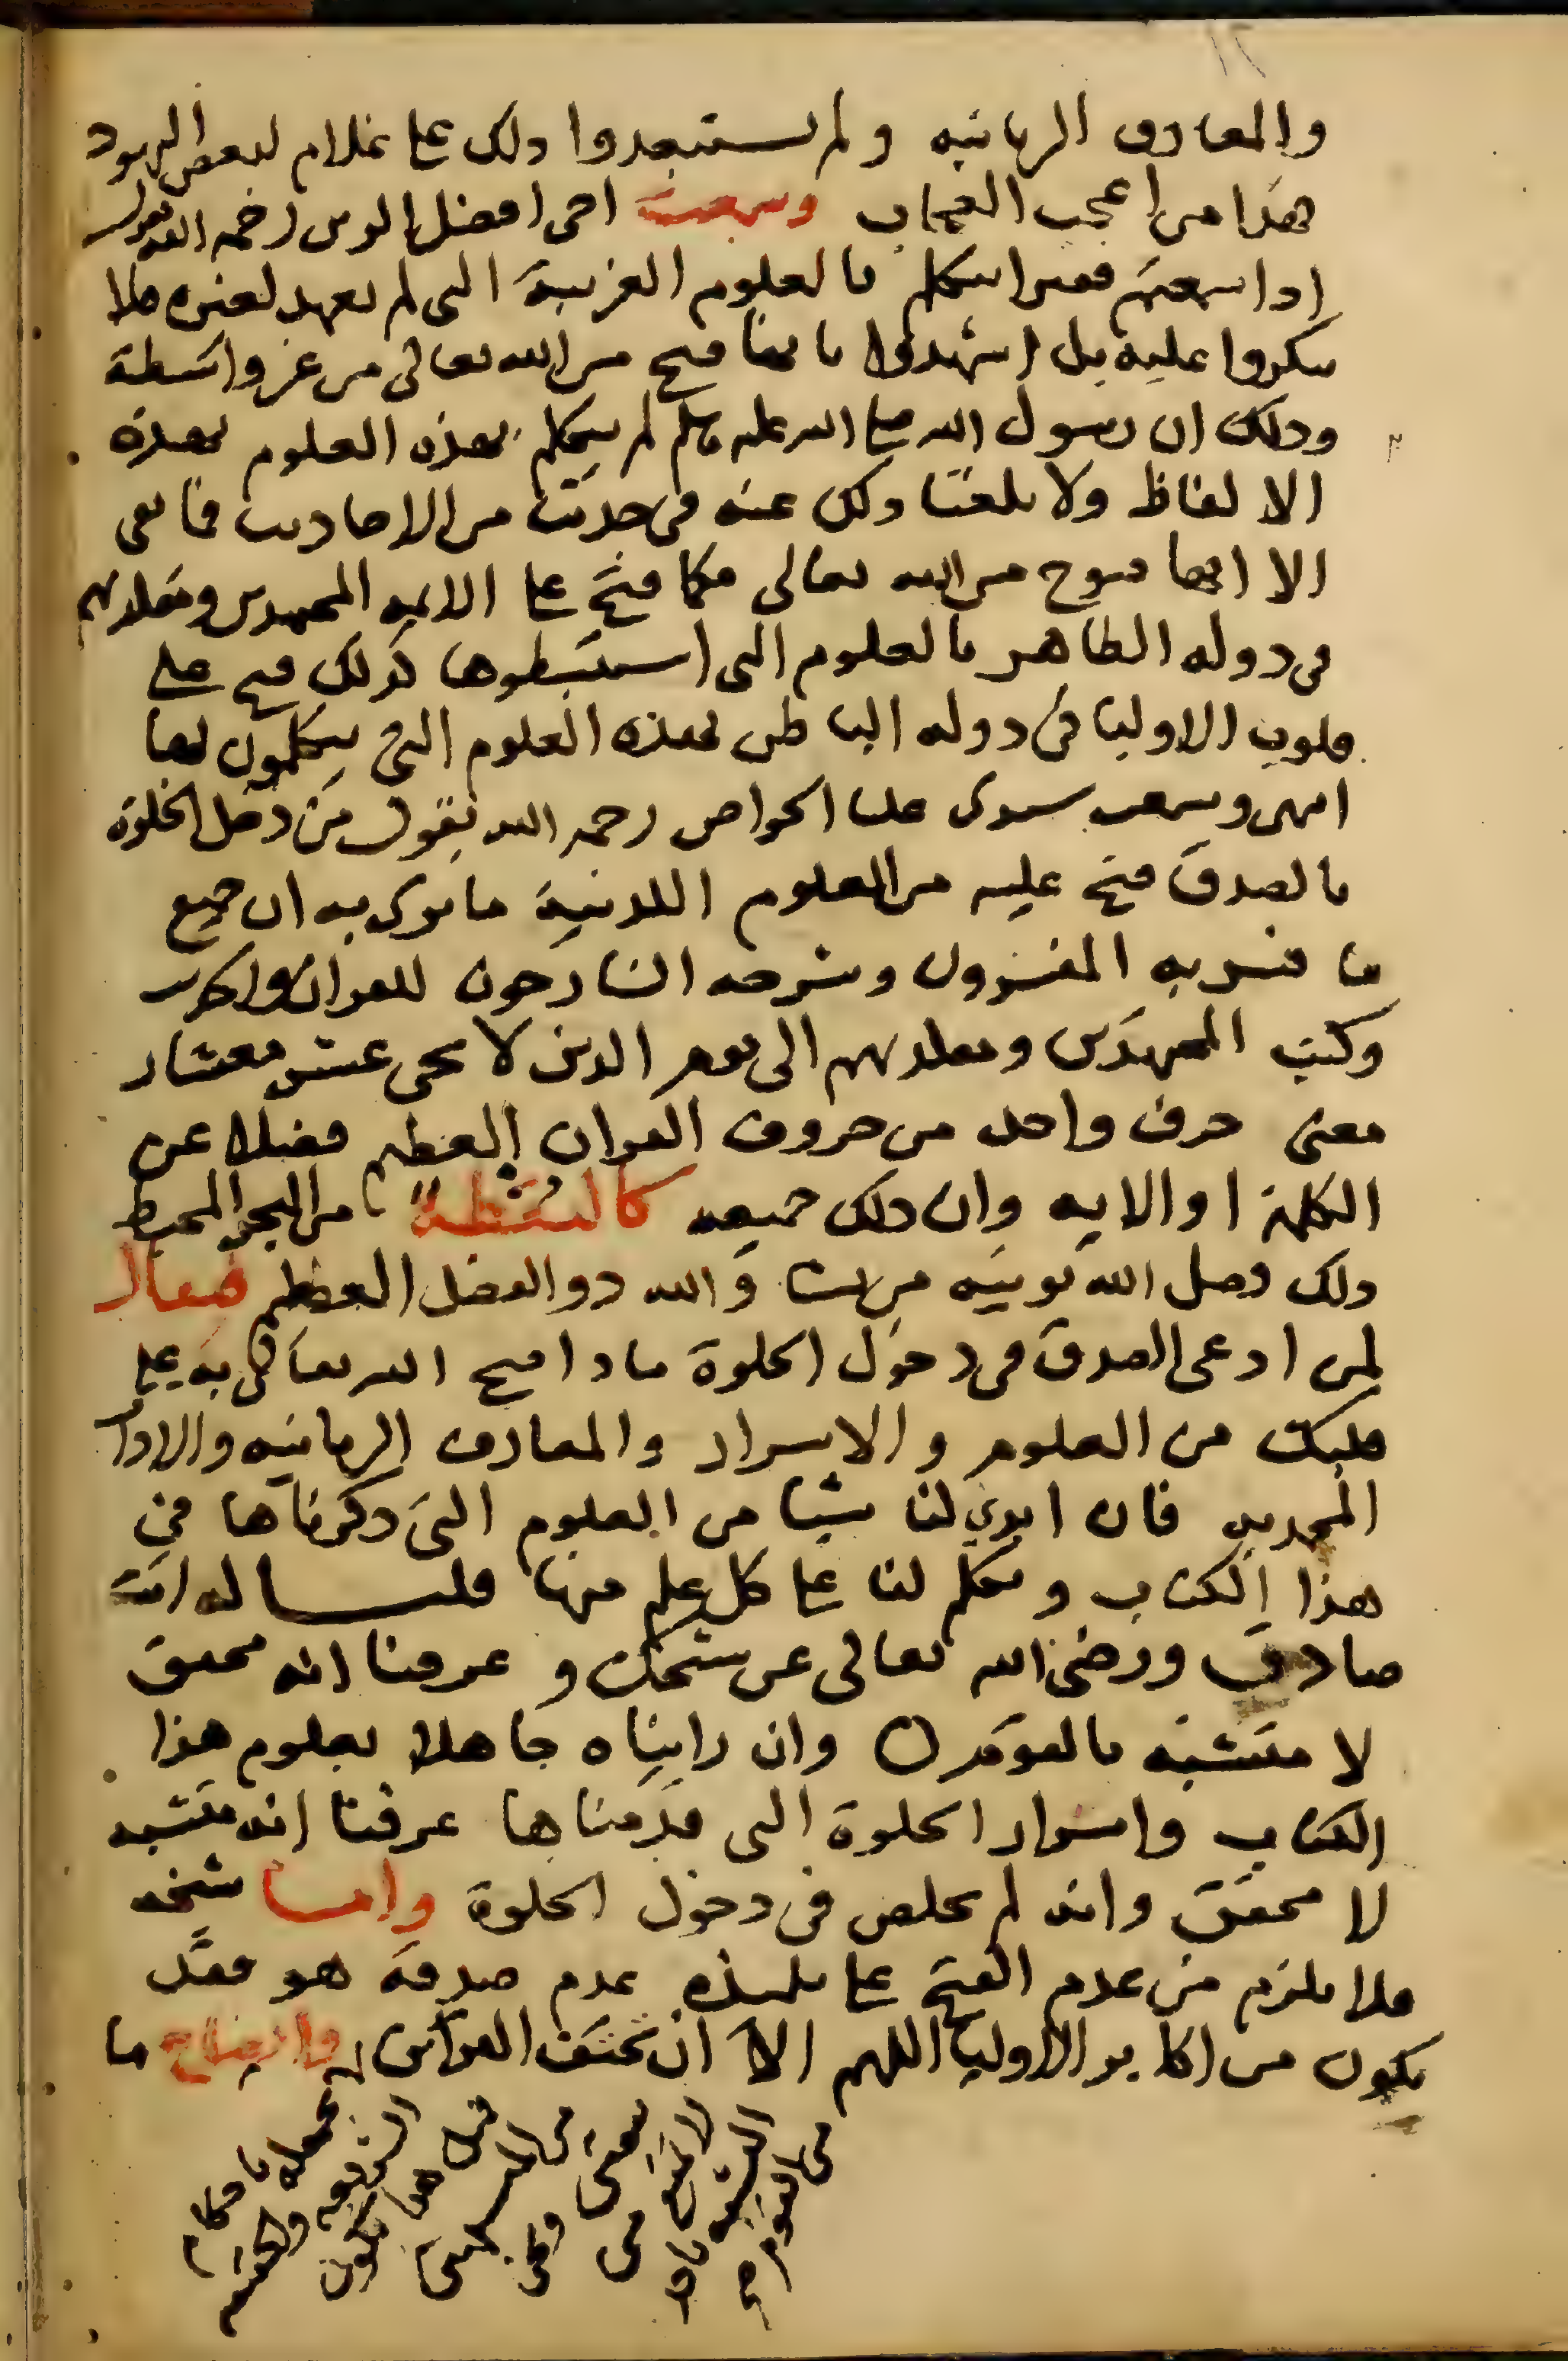 والمعارف الربانيه ولم يستبعدوا ذلك على غلام لبعض اليهود
هذا من اعجب العجاب وسمعت اخى افضل الدين رحمه الله يقول
اذا سمعتم فقيرا يتكلم بالعلوم الغريبة التى لم تعهد لغيره فلا
تنكروا عليه بل اشهدوا بانها فتح من الله تعالى من غير واسطة
وذلك ان رسول الله صلى الله عليه وسلم لم يتكلم بهذه العلوم بهذه
الالفاظ ولا بلغنا ذلك عنه فى حديث من الاحاديث فما بقى
الا انها فتوح من الله تعالى فكما فتح على الايمه المجتهدين ومقلديهم
فى دولة الظاهر بالعلوم التى استنبطوها كذلك فتح على
قلوب الاوليا فى دولة الباطن بهذه العلوم التى يتكلمون بها
انتهى وسمعت سيدى عليا الخواص رحمه الله يقول من دخل الخلوة
بالصدق فتح عليه من العلوم اللدنية ما يرى به ان جميع
ما فسر به المفسرون وشرحه الشارحون للقران والحديث
وكتب المجتهدين ومقلديهم الى يوم الدين لا يجى عشر معشار
معنى حرف واحد من حروف القران العظيم فضلا عن
الكلمة او الاية وان ذلك جميعه كالنقطة من البحر المحيط
ذلك فضل الله يوتيه من يشا والله ذو الفضل العظيم فيقال
لمن ادعى الصدق فى دخول الخلوة ماذا فتح الله تعالى به على
قلبك من العلوم والاسرار والمعارف الربانيه والاداب
المحمديه فان ابدى لنا شيا من العلوم التى ذكرناها فى
هذا الكتاب وتكلم لنا على كل علم منها قلنا له انت
صادق ورضى الله تعالى عن شيخك وعرفنا انه محقق
لا متشبه بالقوم وان رايناه جاهلا بعلوم هذا
الكتاب واسرار الخلوة التى قدمناها عرفنا انه متشبه
لا محقق وانه لم يخلص فى دخول الخلوة واما شيخه
فلا يلزم من عدم الفتح على تلميذه عدم صدقه هو فقد
يكون من اكابر الاوليا اللهم الا ان تحتف القراين وايضاح ما